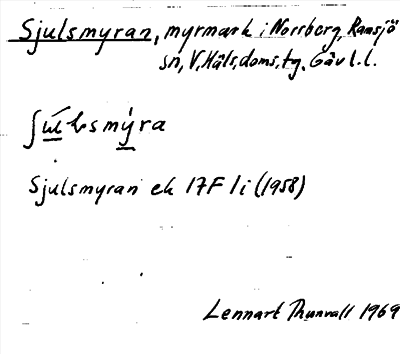 Sjulsmyran, myrmark i Norrberg, Ramsjö
sn, V. Häls. doms. tg, Gävl. l.
ʃu̲l̲smý̲ra
Sjulsmyran ek 17F 1i (1958)
Lennart Thunvall 1969